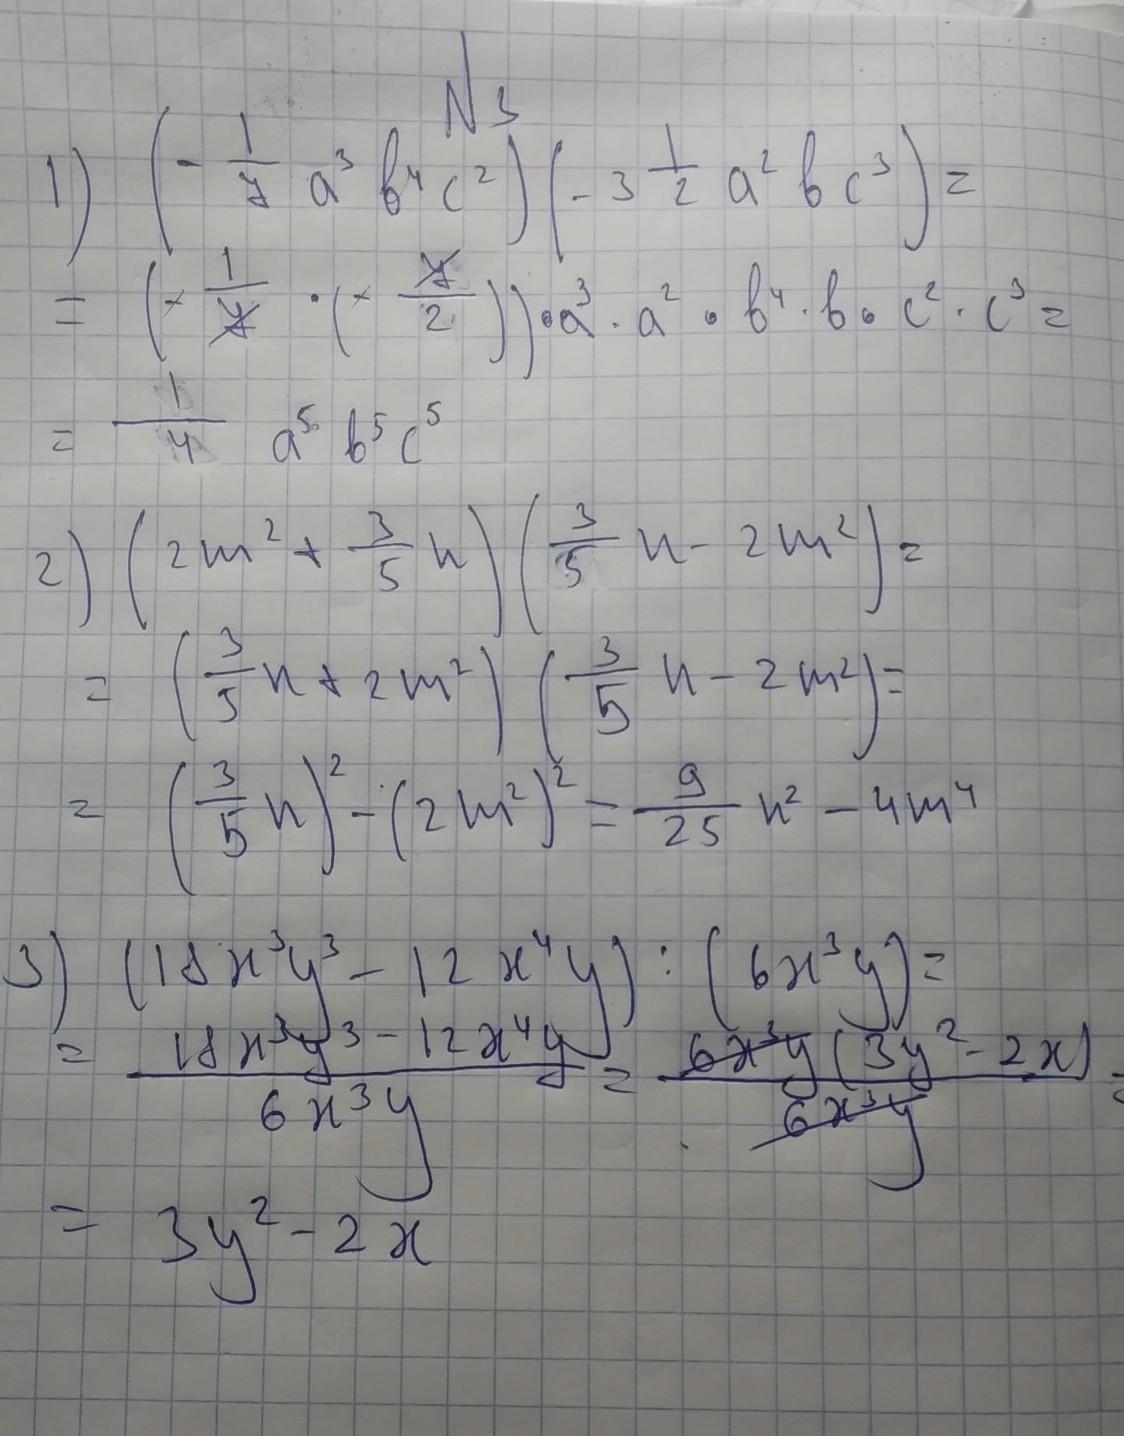 N3
1) (- 1/7 a³ b⁴ c²)(- 3 1/2 a² b c³) =
= (- 1/7 · (- 7/2)) · a³ · a² · b⁴ · b · c² · c³ =
= 1/4 a⁵ b⁵ c⁵
2) (2m² + 3/5 n)(3/5 n - 2m²) =
= (3/5 n + 2m²)(3/5 n - 2m²) =
= (3/5 n)² - (2m²)² = 9/25 n² - 4m⁴
3) (18x³y³ - 12x⁴y) : (6x³y) =
= 18x³y³ - 12x⁴y / 6x³y = 6x³y(3y² - 2x) / 6x³y =
= 3y² - 2x